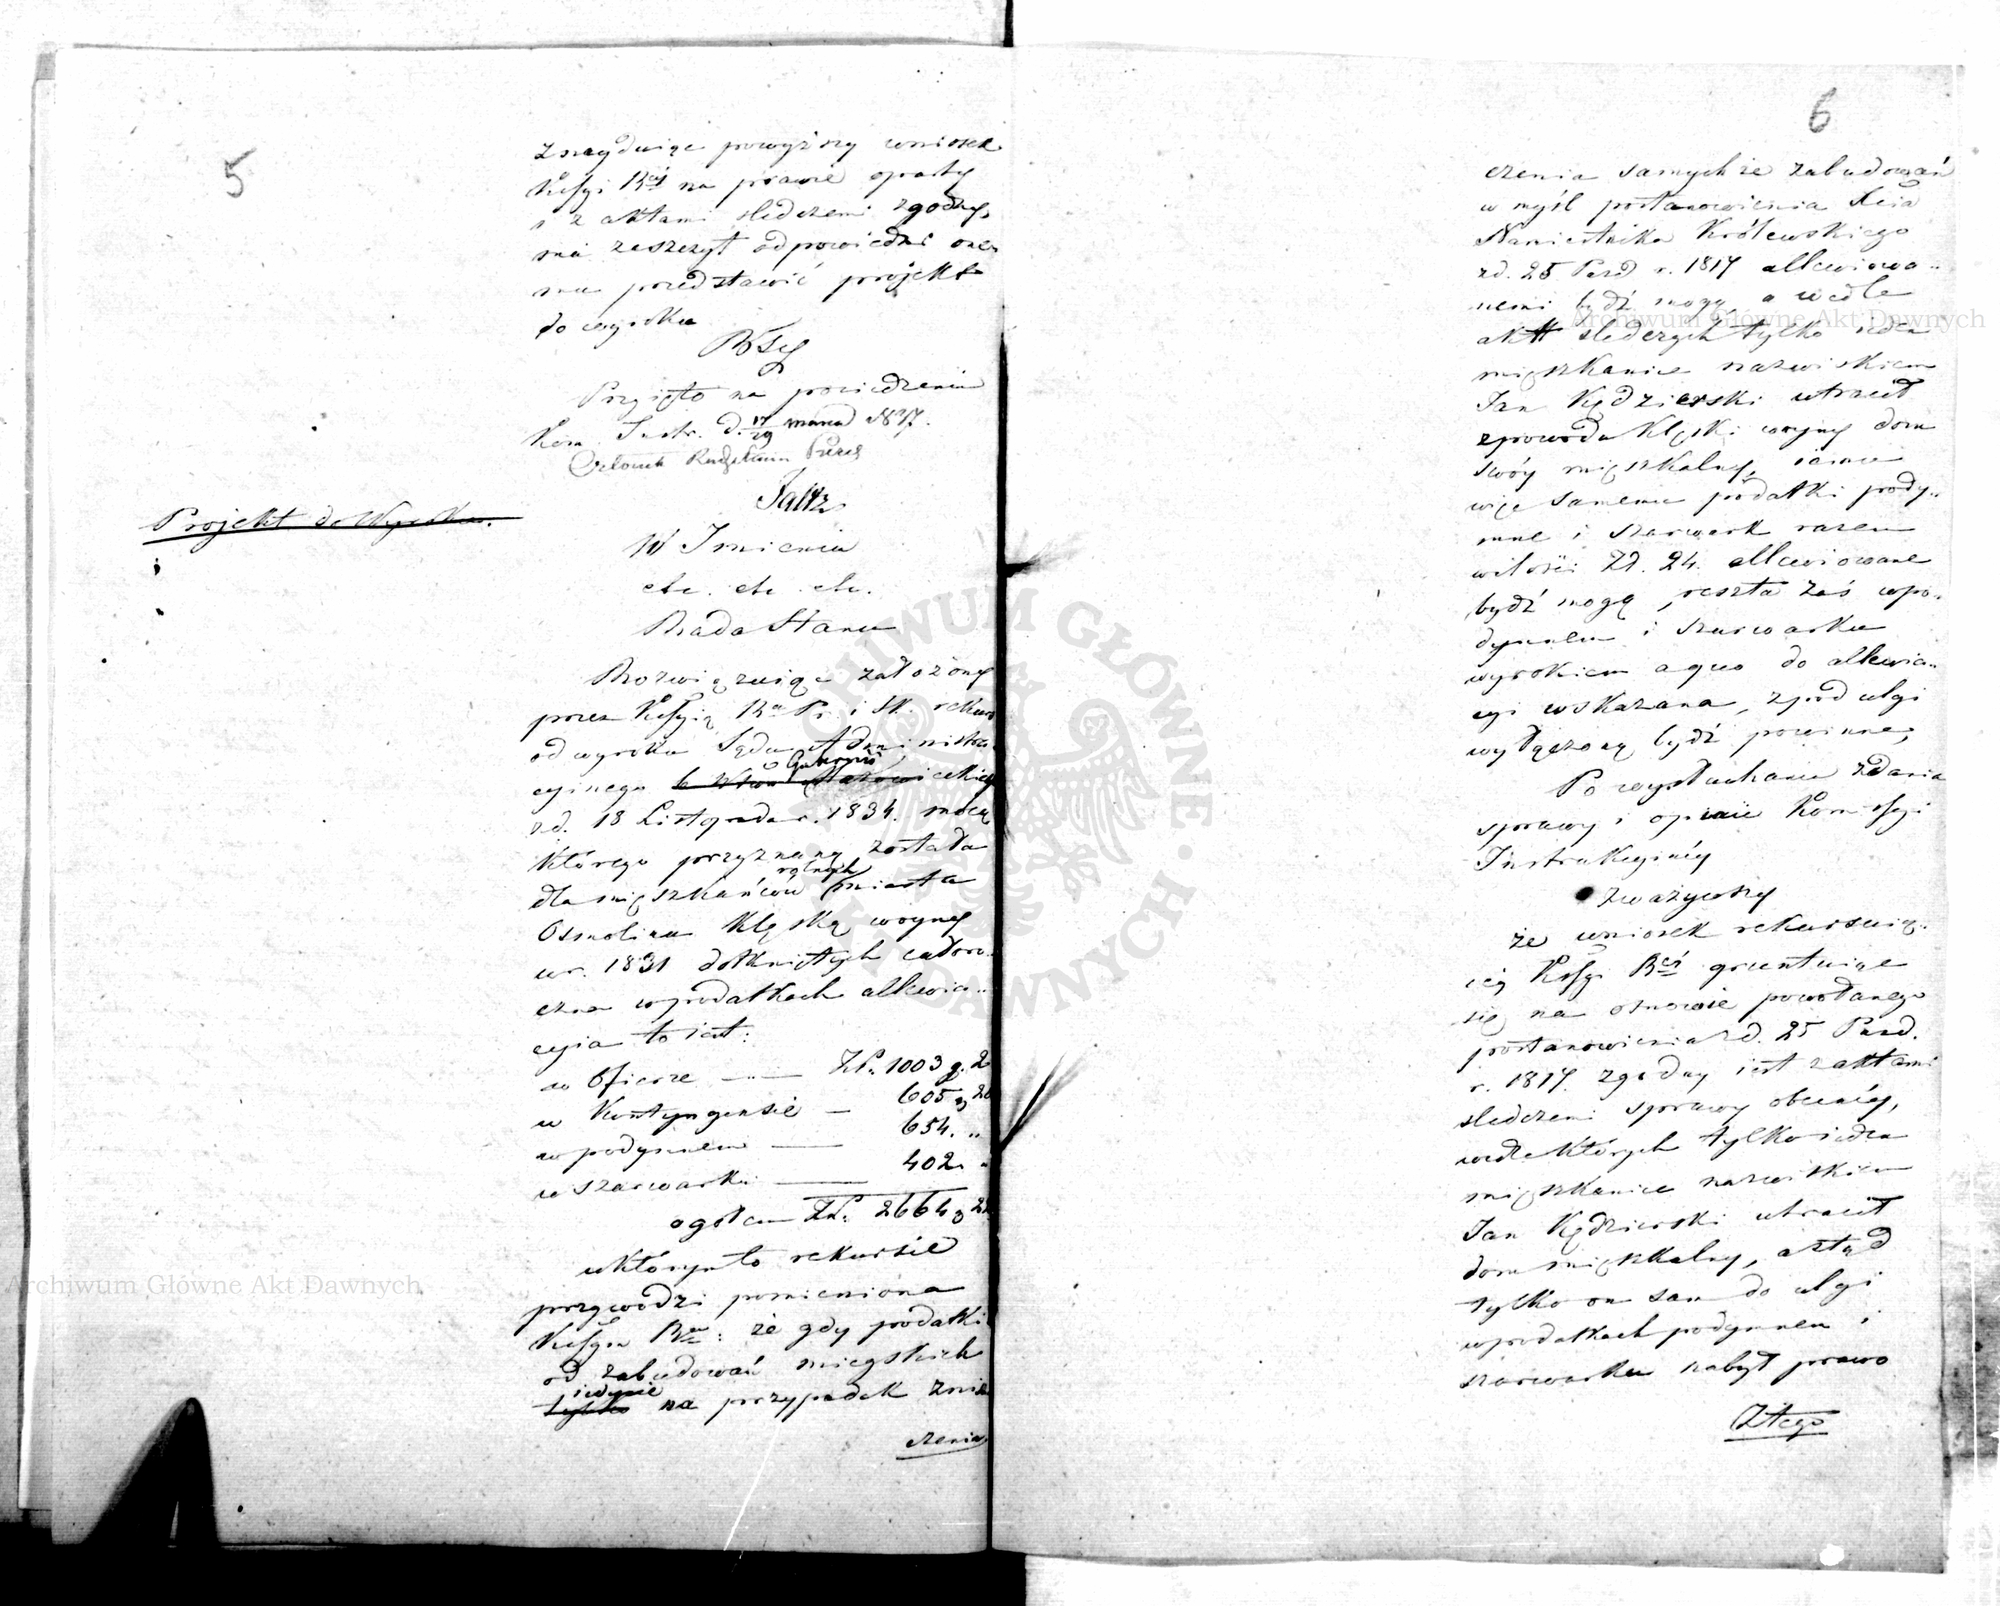 5
znayduiąc powyższy wniosek
Kssyi Rwéj na prawie oparty
i z aktami śledczemi zgodny,
ma zaszczyt odpowiedni one-
mu przedstawić projekt
do wyroku
Przyięto na posiedzeniu
Kom. Instr. d. 17/29 marca 1837.
Członek Rady Stanu
Projekt do Wyroku.
W Imieniu
etc. etc. etc.
Rada Stanu
Rozwiązuiąc założony
przez Kssyią Rą Pr. i Sk. rekurs
od wyroku Sądu Administra-
cyinego Gubernii Mazowieckiey
z d. 18 Listopada r. 1834. mocą
którego przyznaną została
dla mięszkańców rolnych miasta
Osmolina klęską woyny
w r. 1831 dotkniętych całoro-
czna w podatkach allewia-
cyia to iest:
w Ofierze — Zł. 1003 g. 2
w Kontyngensie — 605 g 20
w podymnem — 654. „
w szarwarku — 402. „
ogołem Zł. 2664 g 22
w którym to rekursie
przywodzi pomieniona
Kssyia Rwa: że gdy podatki
od zabudowań mieyskich
iedynie
tylko na przypadek znisz
czenia
6
czenia samychże zabudowań
w myśl postanowienia Xcia
Namiestnika Królewskiego
z d. 25 Pazd r. 1817 allewiowa-
nemi bydź mogą a wedle
akt śledczych tylko ieden
mięszkaniec nazwiskiem
Jan Kędzierski utracił
z powodu klęski woyny dom
swóy mięszkalny, iemu
więc samemu podatki pody-
mne i szarwark razem
w ilości Zł. 24. allewiowane
bydź mogą, reszta zaś w po-
dymnem i szarwarku
wyrokiem a quo do allewia-
cyi wskazana, z pod ulgi
wyłączoną bydź powinna;
Po wysłuchaniu zdania
sprawy i opinii Kommissyi
Instrukcyinéy
Zważywszy
że wniosek rekursuią-
céy Kssyi Rwéj gruntuiąc
się na osnowie powołanego
postanowienia z d. 25 Pazd.
r. 1817. zgodny iest z aktami
śledczemi sprawy obecnéy,
wedle których tylko ieden
mięszkaniec nazwiskiem
Jan Kędzierski utracił
dom mięszkalny, a ztąd
tylko on sam do ulgi
w podatkach podymnem i
szarwarku nabył prawo
Z tego
Archiwum Główne Akt Dawnych
Archiwum Główne Akt Dawnych
ARCHIWUM GŁÓWNE AKT DAWNYCH